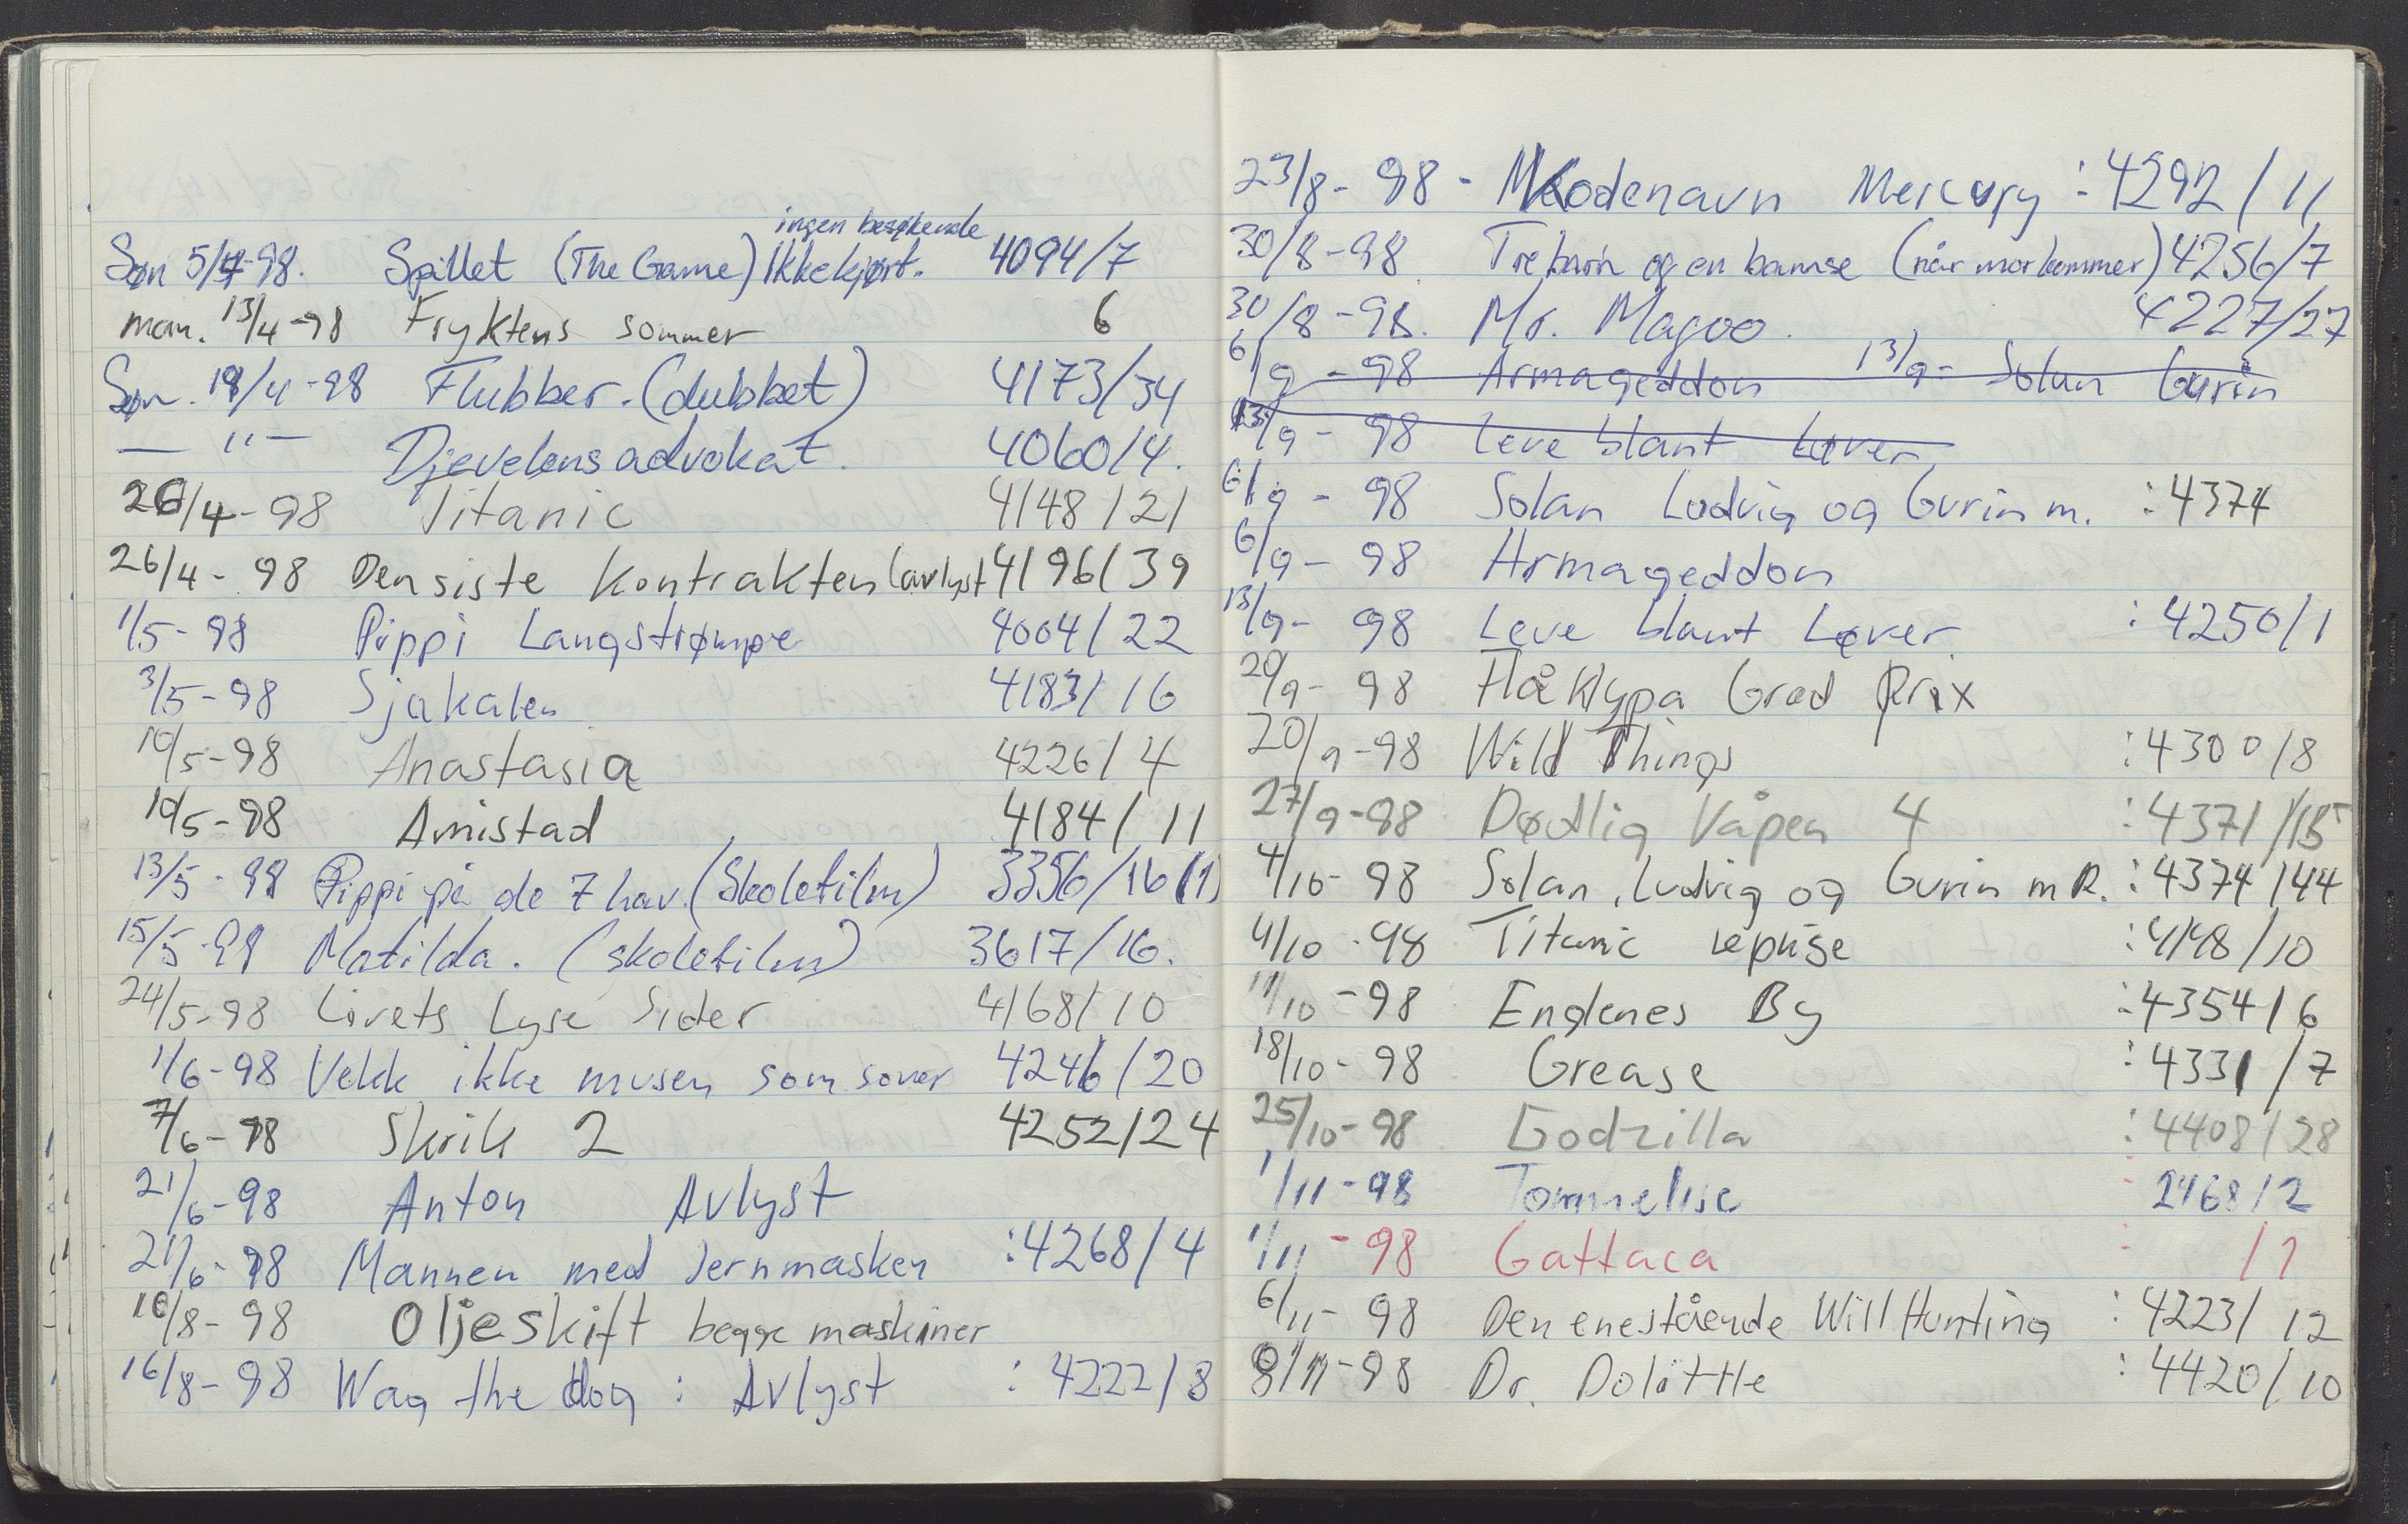 ingen besøkende
Søn 5/4-98. Spillet (The Game) Ikke kjørt. 4094/7
man. 13/4-98 Fryktens sommer 6
Søn. 19/4-98 Flubber. (dubbet) 4173/34
— " — Djevelens advokat. 4060/4.
26/4-98 Titanic 4148/21
26/4-98 Den siste Kontrakten (avlyst 4196/39
1/5-98 Pippi Langstrømpe 4004/22
3/5-98 Sjakalen 4183/16
10/5-98 Anastasia 4226/4
10/5-98 Amistad 4184/11
13/5-98 Pippi på de 7 hav. (Skolefilm) 3356/16 (1)
15/5-98 Matilda. (skolefilm) 3617/16.
24/5-98 Livets Lyse Sider 4168/10
1/6-98 Vekk ikke musen som sover 4246/20
7/6-98 Skrik 2 4252/24
21/6-98 Anton Avlyst
21/6-98 Mannen med Jernmasken :4268/4
16/8-98 Oljeskift begge maskiner
16/8-98 Wag the dog : Avlyst : 4222/8
23/8-98 - Kodenavn Mercury : 4292/11
30/8-98 Tre barn og en bamse (når mor kommer) 4256/7
30/8-98. Mr. Magoo. 4227/27
6/9-98 Armageddon 13/9- Solan Gurin
13/9-98 Leve blant Løver
6/9-98 Solan Ludvig og Gurin m. :4374
6/9-98 Armageddon
13/9-98 Leve blant Løver. :4250/1
20/9-98 Flåklypa Grad Prix
20/9-98 Wild Things :4300/8
27/9-98 Dødlig Våpen 4 :4371/15
4/10-98 Solan, Ludvig og Gurin m R. :4374/44
4/10-98 Titanic reprise :4148/10
11/10-98 Englenes By :4354/6
18/10-98 Grease :4331/7
25/10-98 Godzilla :4408/28
1/11-98 Tommelise 2468/2
1/11-98 Gattaca : /1
6/11-98 Den enestående Will Hunting : 4223/12
8/11-98 Dr. Dolittle : 4420/10